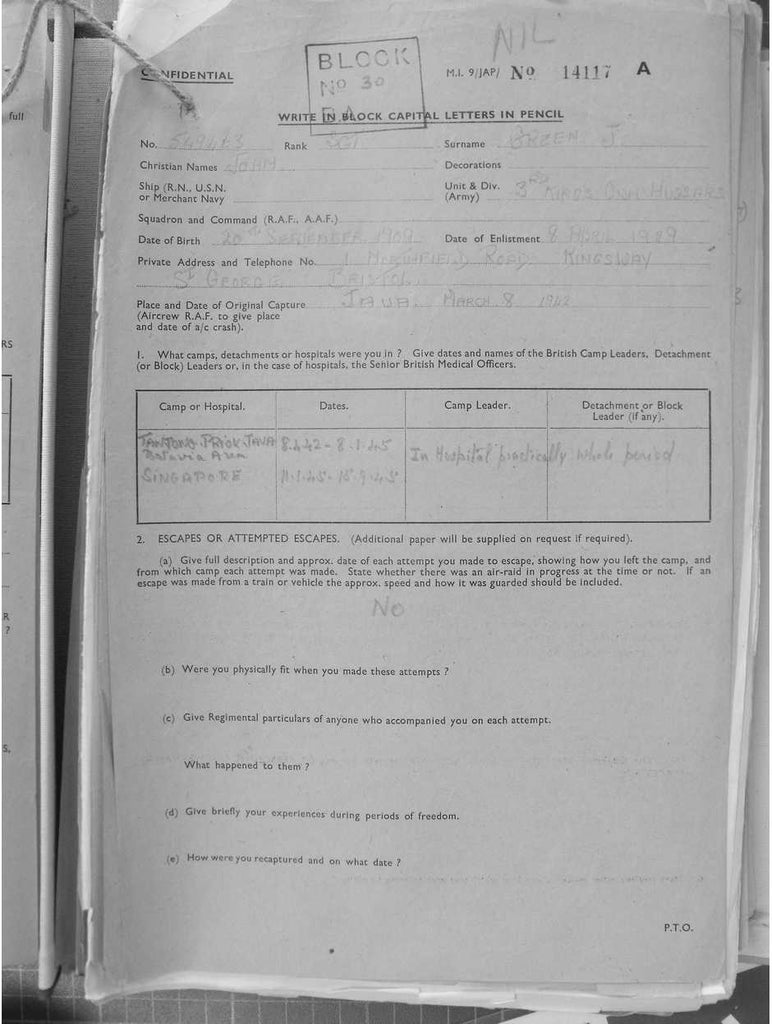 NIL
BLOCK
No 30
CONFIDENTIAL
M.I. 9/JAP/ No 14117 A
full
WRITE IN BLOCK CAPITAL LETTERS IN PENCIL
No. Rank SGT Surname J.
Christian Names JOHN Decorations
Ship (R.N., U.S.N. or Merchant Navy
Unit & Div. (Army) 3RD KING'S OWN HUSSARS
Squadron and Command (R.A.F., A.A.F.)
Date of Birth 20TH SEPTEMBER 1909 Date of Enlistment 8 APRIL 1929
Private Address and Telephone No. 1 ROAD KINGSWAY
ST GEORGE BRISTOL
Place and Date of Original Capture JAVA. MARCH 8 1942
(Aircrew R.A.F. to give place
and date of a/c crash).
RS
1. What camps, detachments or hospitals were you in ? Give dates and names of the British Camp Leaders, Detachment
(or Block) Leaders or, in the case of hospitals, the Senior British Medical Officers.
Camp or Hospital. Dates. Camp Leader. Detachment or Block
Leader (if any).
TANJONG PRIOK JAVA 8.4.42 - 8.1.45 In Hospital practically whole period
Batavia Area
SINGAPORE 11.1.45 - 15.9.45
2. ESCAPES OR ATTEMPTED ESCAPES. (Additional paper will be supplied on request if required).
(a) Give full description and approx. date of each attempt you made to escape, showing how you left the camp, and
from which camp each attempt was made. State whether there was an air-raid in progress at the time or not. If an
escape was made from a train or vehicle the approx. speed and how it was guarded should be included.
No
R
?
(b) Were you physically fit when you made these attempts ?
(c) Give Regimental particulars of anyone who accompanied you on each attempt.
S,
What happened to them ?
(d) Give briefly your experiences during periods of freedom.
(e) How were you recaptured and on what date ?
P.T.O.